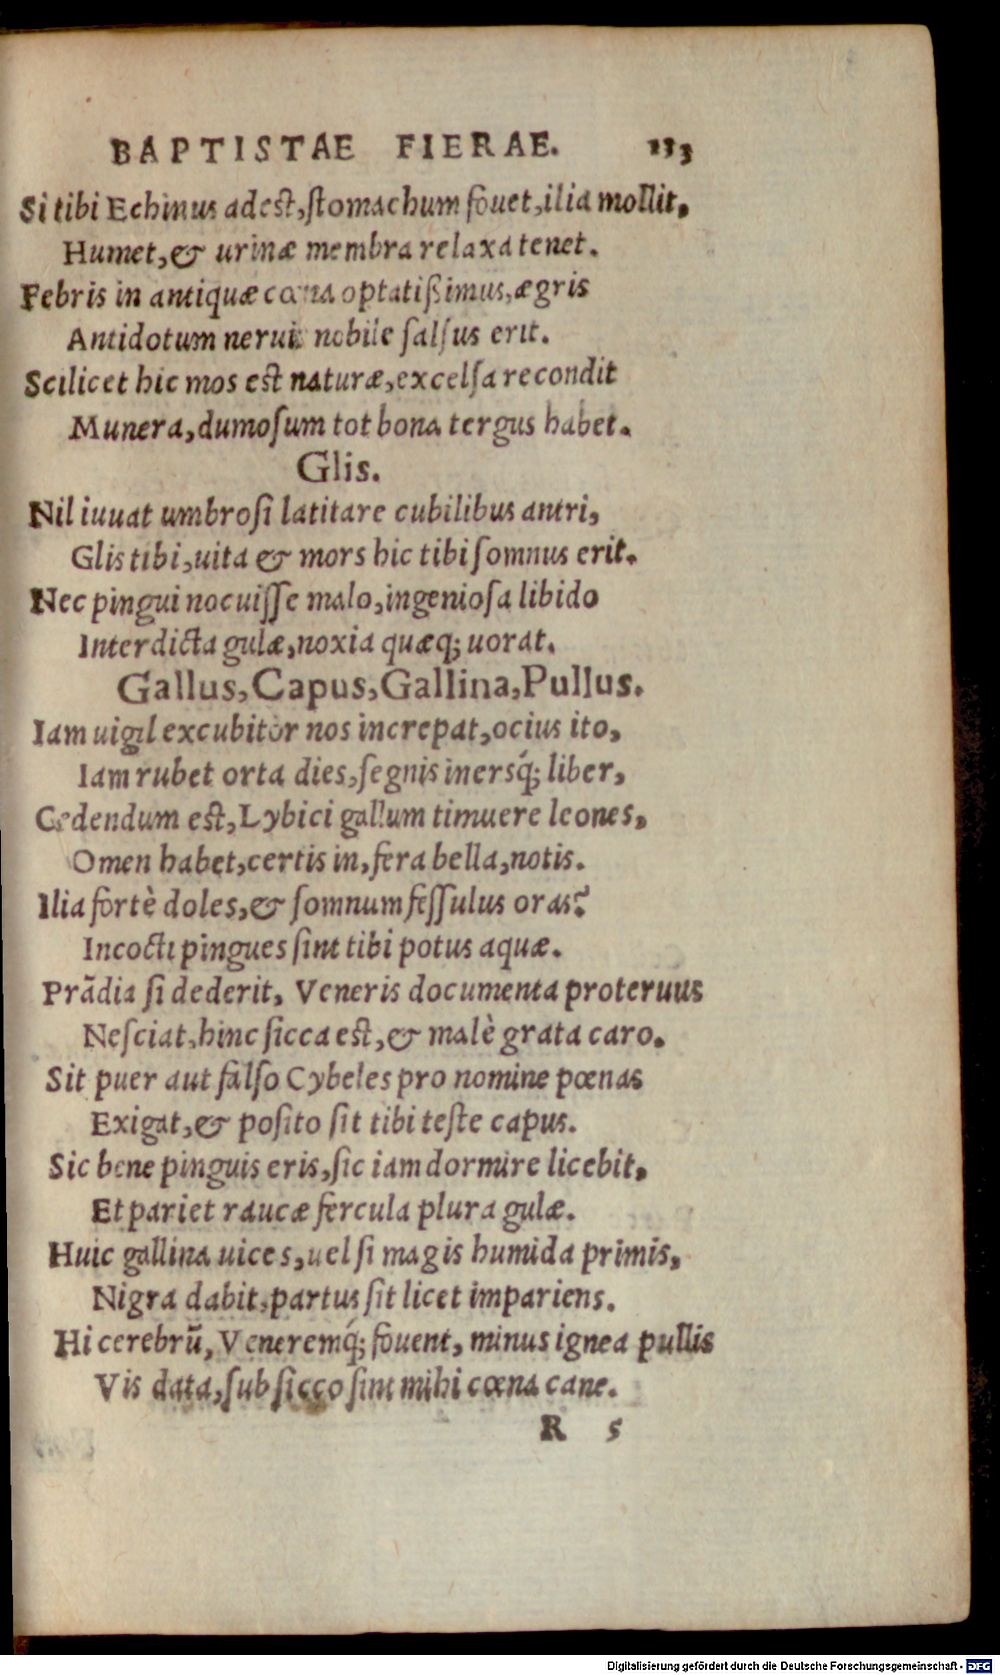 BAPTISTAE FIERAE. 133
Si tibi Echinus adest, ſtomachum fouet, ilia mollit,
Humet, & urinæ membra relaxa tenet.
Febris in antiquæ cœna optatiſsimus, ægris
Antidotum nerui nobile ſalſus erit.
Scilicet hic mos est naturæ, excelſa recondit
Munera, dumoſum tot bona tergus habet.
Glis.
Nil iuuat umbroſi latitare cubilibus antri,
Glis tibi, uita & mors hic tibi ſomnus erit.
Nec pingui nocuiſſe malo, ingenioſa libido
Interdicta gulæ, noxia quæq; uorat.
Gallus, Capus, Gallina, Pullus.
Iam uigil excubitor nos increpat, ocius ito,
Iam rubet orta dies, ſegnis inersq́; liber,
Cedendum est, Lybici gallum timuere leones,
Omen habet, certis in, fera bella, notis.
Ilia fortè doles, & ſomnum feſſulus oras?
Incocti pingues ſint tibi potus aquæ.
Prãdia ſi dederit, Veneris documenta proteruus
Neſciat, hinc ſicca est, & malè grata caro.
Sit puer aut falſo Cybeles pro nomine pœnas
Exigat, & poſito ſit tibi teſte capus.
Sic bene pinguis eris, ſic iam dormire licebit,
Et pariet raucæ fercula plura gulæ.
Huic gallina uices, uel ſi magis humida primis,
Nigra dabit, partus ſit licet impariens.
Hi cerebrũ, Veneremq́; fouent, minus ignea pullis
Vis data, ſub ſicco ſint mihi cœna cane.
R 5
Digitalisierung gefördert durch die Deutsche Forschungsgemeinschaft - DFG